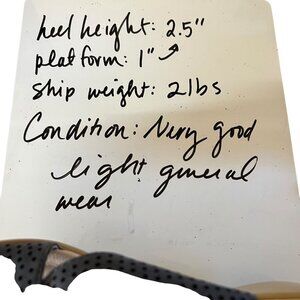 heel height: 2.5"
platform: 1"
Ship weight: 2lbs
Condition: Very good
light general
wear